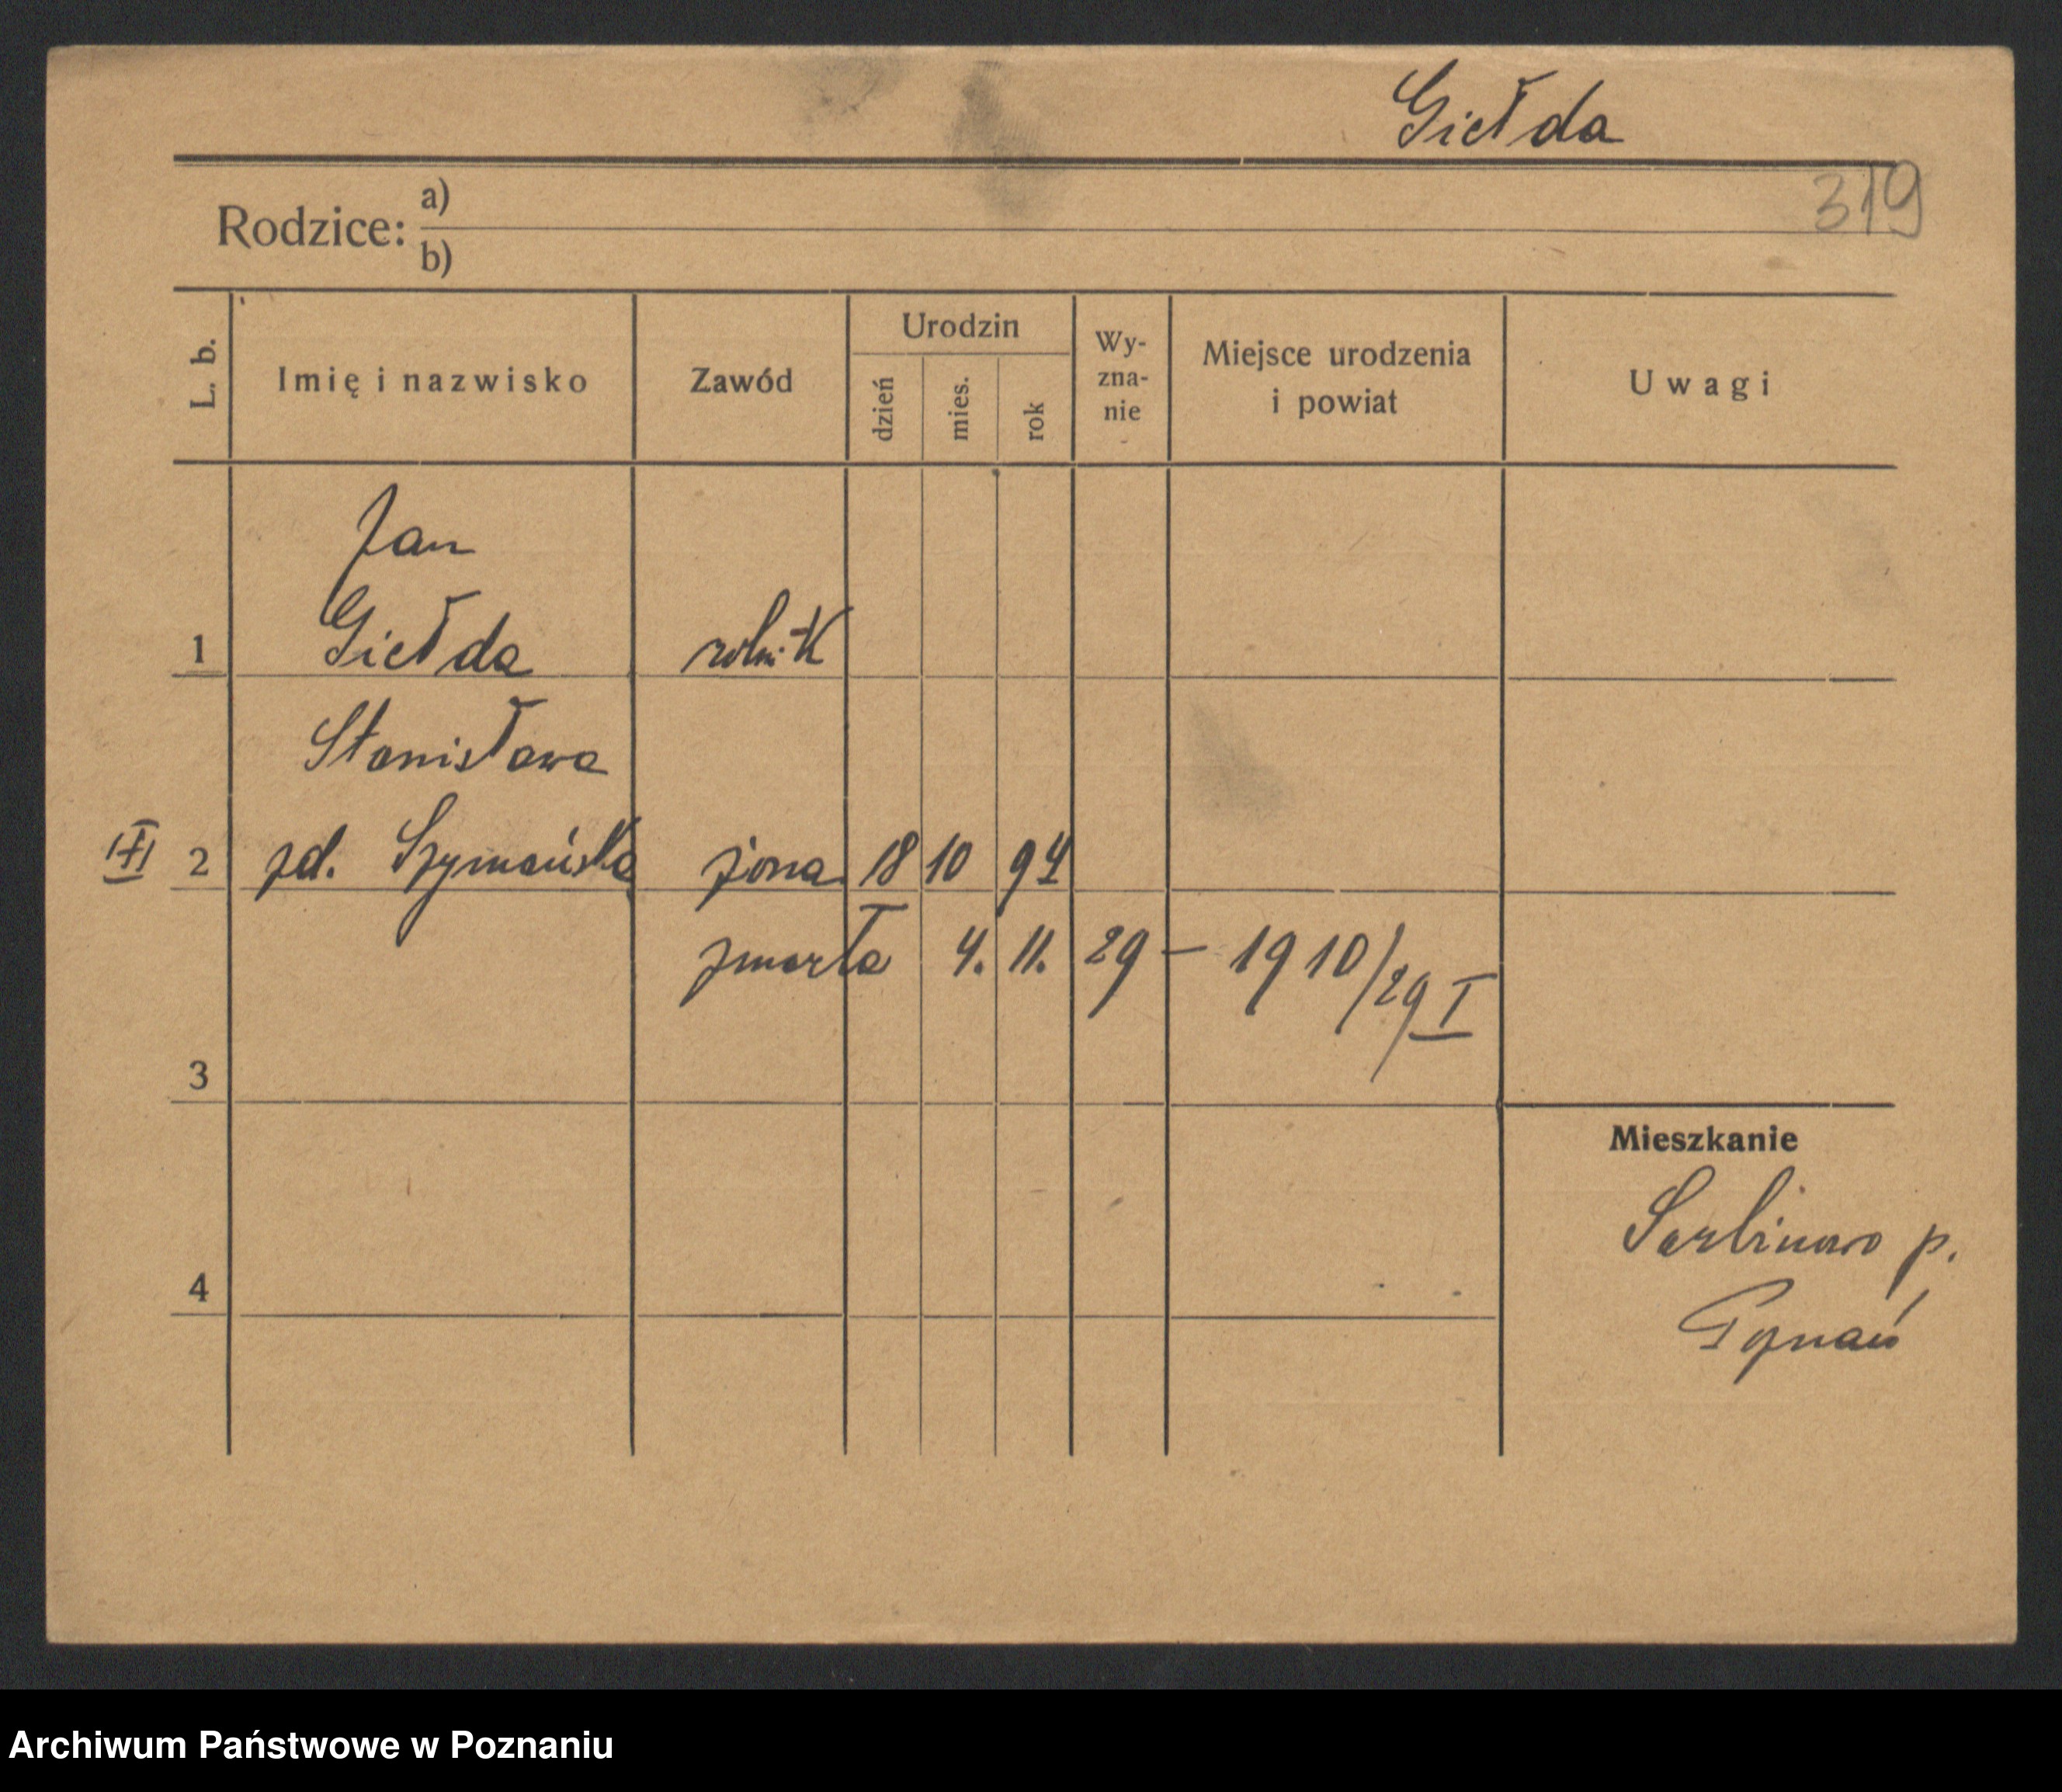 Giełda
319
Rodzice: a)
b)
L. b. Imię i nazwisko Zawód Urodzin dzień mies. rok Wy-zna-nie Miejsce urodzenia i powiat Uwagi
Jan
1 Giełda rolnik
Stanisława
III 2 zd. Szymańska żona 18 10 94
zmarła 4. 11. 29 – 1910/29 I
3
Mieszkanie
Sarbinowo p.
4
Poznań
Archiwum Państwowe w Poznaniu